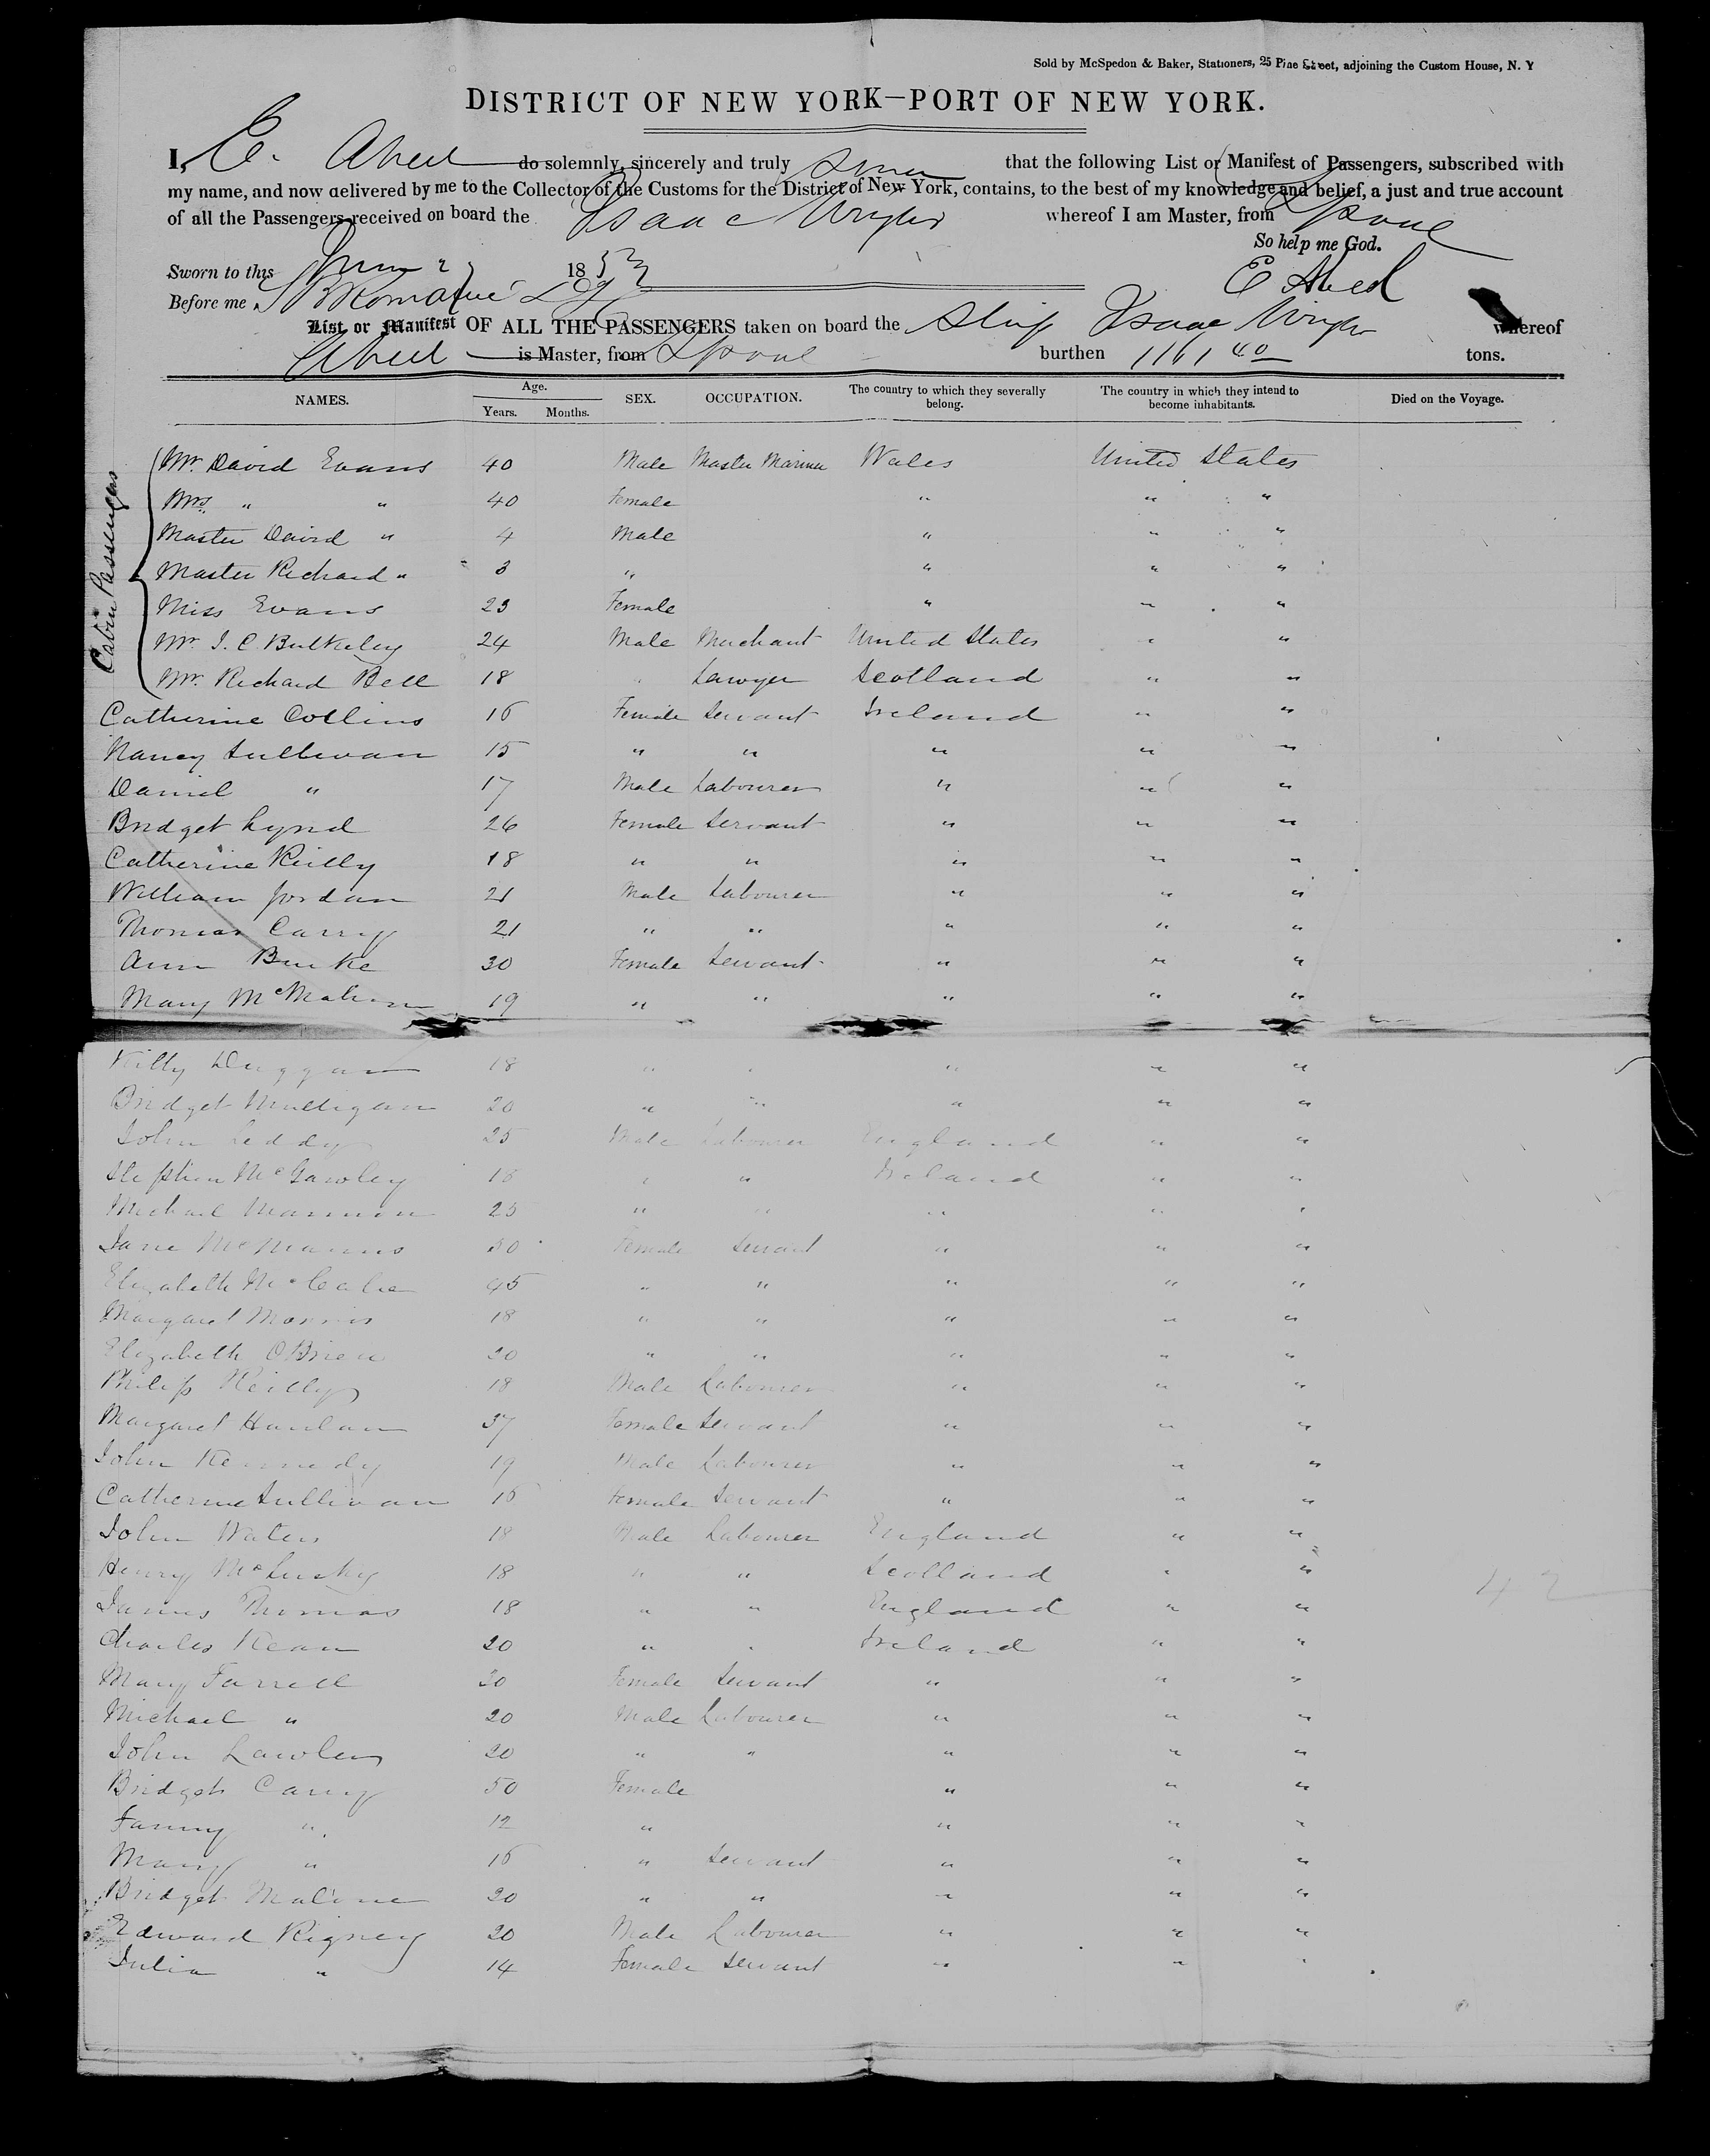 Sold by McSpedon & Baker, Stationers, 25 Pine Street, adjoining the Custom House, N. Y
DISTRICT OF NEW YORK—PORT OF NEW YORK.
I, E. Abeel do solemnly, sincerely and truly swear that the following List or Manifest of Passengers, subscribed with
my name, and now delivered by me to the Collector of the Customs for the District of New York, contains, to the best of my knowledge and belief, a just and true account
of all the Passengers received on board the Isaac Wright whereof I am Master, from Lpool
So help me God.
Sworn to this June 1853
E Abeel
Before me
List or Manifest OF ALL THE PASSENGERS taken on board the Ship Isaac Wright whereof
Abeel is Master, from Lpool burthen 1161 40 tons.
NAMES. Age. Years. Months. SEX. OCCUPATION. The country to which they severally belong. The country in which they intend to become inhabitants. Died on the Voyage.
Cabin Passengers
Mr. David Evans 40 Male Master Mariner Wales United States
Mrs. " " 40 Female " " "
Master David " 4 Male " " "
Master Richard " 3 " " " "
Miss Evans 23 Female " " "
Mr. J. C. Bulkeley 24 Male Merchant United States " "
Mr. Richard Bell 18 " Lawyer Scotland " "
Catherine Collins 16 Female Servant Ireland " "
Nancy Sullivan 15 " " " " "
Daniel " 17 Male Labourer " " "
Bridget Lynd 26 Female Servant " " "
Catherine Reilly 18 " " " " "
William Jordan 21 Male Labourer " " "
Thomas Carry 21 " " " " "
Ann Burke 30 Female Servant " " "
Mary McMahon 19 " " " " "
Kitty Duggan 18 " " " " "
Bridget Mulligan 20 " " " " "
John Leddy 25 Male Labourer England " "
Stephen McGawley 16 " " Ireland " "
Michael 25 " " " " "
Jane McManus 30 Female Servant " " "
Elizabeth McCabe 45 " " " " "
Margaret Morris 18 " " " " "
Elizabeth OBrien 20 " " " " "
Philip Reilly 18 Male Labourer " " "
Margaret Hanlan 37 Female Servant " " "
John Kennedy 19 Male Labourer " " "
Catherine Sullivan 16 Female Servant " " "
John Waters 18 Male Labourer England " "
Henry McLusky 18 " " Scotland " "
James Thomas 18 " " England " "
Charles Kean 20 " " Ireland " "
Mary Farrell 20 Female Servant " " "
Michael " 20 Male Labourer " " "
John Lawler 20 " " " " "
Bridget Carry 50 Female " " "
Fanny " 12 " " " "
Mary " 16 " Servant " " "
Bridget Malone 20 " " " " "
Edward Rigney 20 Male Labourer " " "
Julia " 14 Female Servant " " "
42